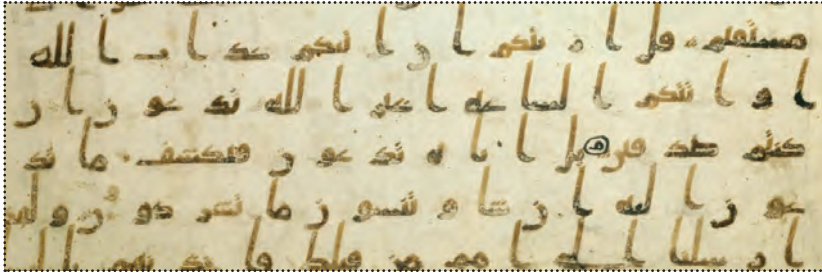 مستقيم قل اريتكم ان اتيكم عذاب الله
او اتتكم الساعه اغير الله تدعون ان
كنتم صدقين بل اياه تدعون فيكشف ما تد
عون اليه ان شا وتنسون ما تشركون ولقد
ارسلنا الى امم من قبلك فاخذنهم